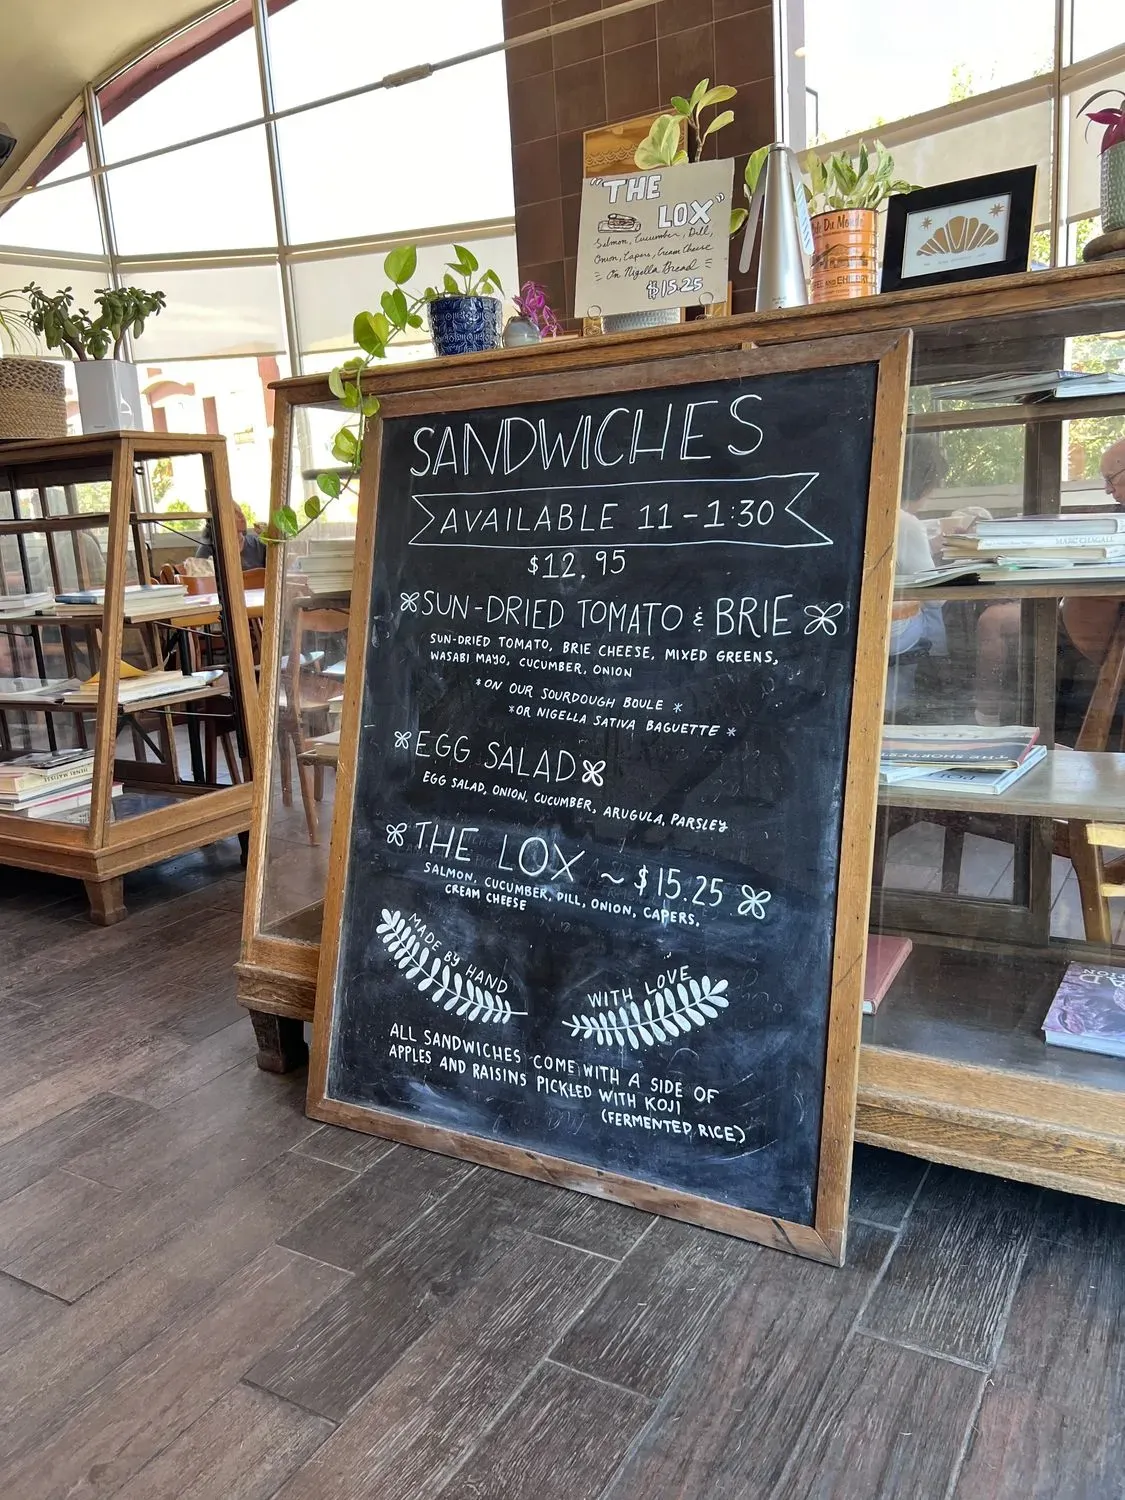 "THE
LOX"
Salmon, Cucumber, Dill,
Onion, Capers, Cream Cheese
On Nigella Bread
$15.25
SANDWICHES
AVAILABLE 11-1:30
$12.95
SUN-DRIED TOMATO & BRIE
SUN-DRIED TOMATO, BRIE CHEESE, MIXED GREENS,
WASABI MAYO, CUCUMBER, ONION
*ON OUR SOURDOUGH BOULE *
*OR NIGELLA SATIVA BAGUETTE *
EGG SALAD
EGG SALAD, ONION, CUCUMBER, ARUGULA, PARSLEY
THE LOX ~ $15.25
SALMON, CUCUMBER, DILL, ONION, CAPERS,
CREAM CHEESE
MADE BY HAND
WITH LOVE
ALL SANDWICHES COME WITH A SIDE OF
APPLES AND RAISINS PICKLED WITH KOJI
(FERMENTED RICE)
MARC CHAGALL
HENRI MATISSE